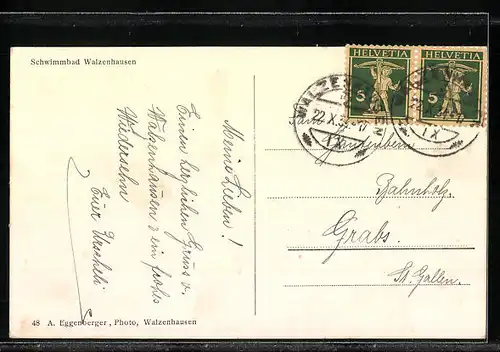 Schwimmbad Walzenhausen
HELVETIA HELVETIA
5 5
WALZENHAUSEN
22.X.
Meine Lieben!
Einen herzlichen Gruss v.
Walzenhausen & ein frohes
Wiedersehn
Euer Urscheli
Gantenbein
Bahnhofg.
Grabs.
St. Gallen.
48 A. Eggenberger, Photo, Walzenhausen